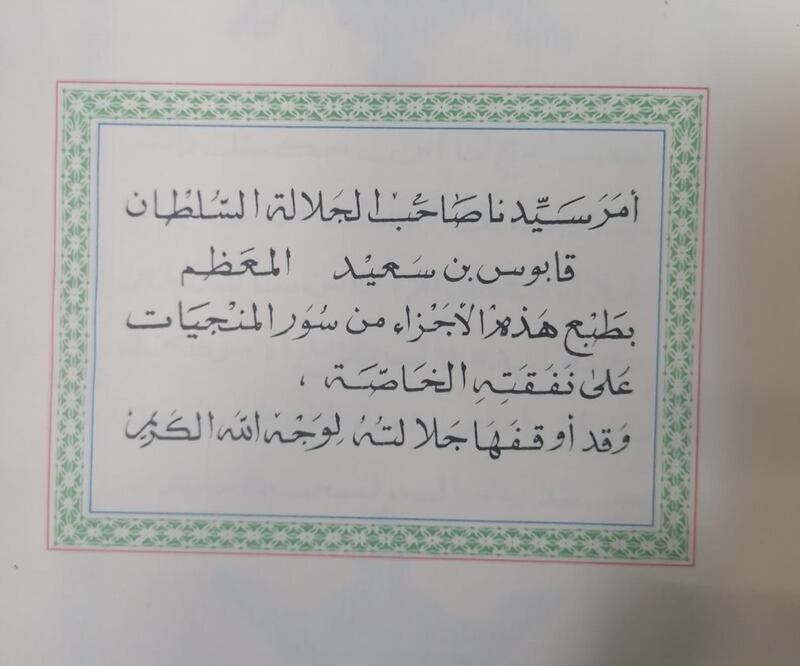 أمَرَ سَيِّدنا صَاحْبُ الجَلالة السُّلْطان
قابوس بن سَعيْد المعَظم
بطَبْع هَذهِ الأجَزْاء من سُوَر المنْجيَات
عَلىٰ نَفَقَتِهِ الخَاصّة ،
وَقد أوقفَهَا جَلالتهُ لِوَجْه اللّٰه الكَريْم